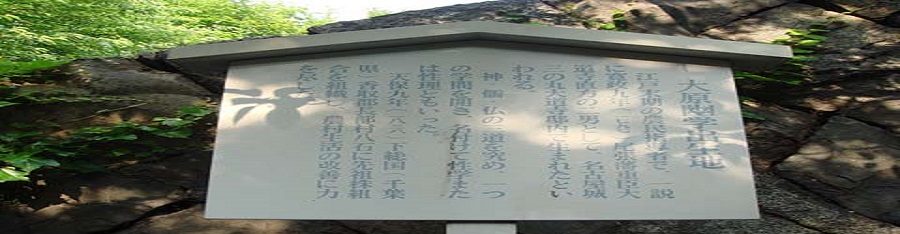 大原幽学出生地
江戸末期の農民指導者で、説
に寛政九年(一七九七)尾張藩重臣大
道寺直方の二男として、名古屋城
三の丸大道寺邸内で生まれたとい
われる。
神・儒・仏の三道を究め、一つ
の学問を開き、名付けて性学また
は性理学ともいった。
天保九年(一八三八)下総国(千葉
県)香取郡長部村八石に先祖株組
合を組織し、農村生活の改善に力
を尽し